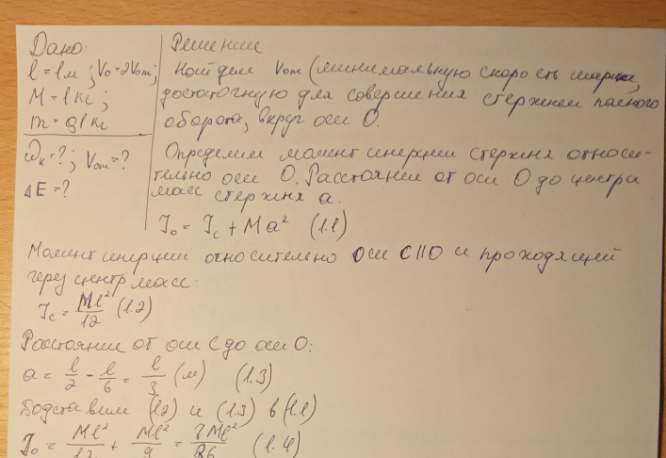 Дано:
l = 1м; V₀ = 2V₀m;
M = 1кг;
m = 0,1кг
ω₂ = ?; V₀m = ?
ΔE = ?
Решение
Найдем V₀m (минимальную скорость шарика,
достаточную для совершения стержнем полного
оборота, вкруг оси O.
Определим момент инерции стержня относи-
тельно оси O. Расстояние от оси O до центра
масс стержня a.
J₀ = J_c + Ma² (1.1)
Момент инерции относительно оси C||O и проходящей
через центр масс:
J_c = Ml²/12 (1.2)
Расстояние от оси C до оси O:
a = l/2 - l/6 = l/3 (м) (1.3)
Подставим (1.2) и (1.3) в (1.1)
J₀ = Ml²/12 + Ml²/9 = 7Ml²/36 (1.4)